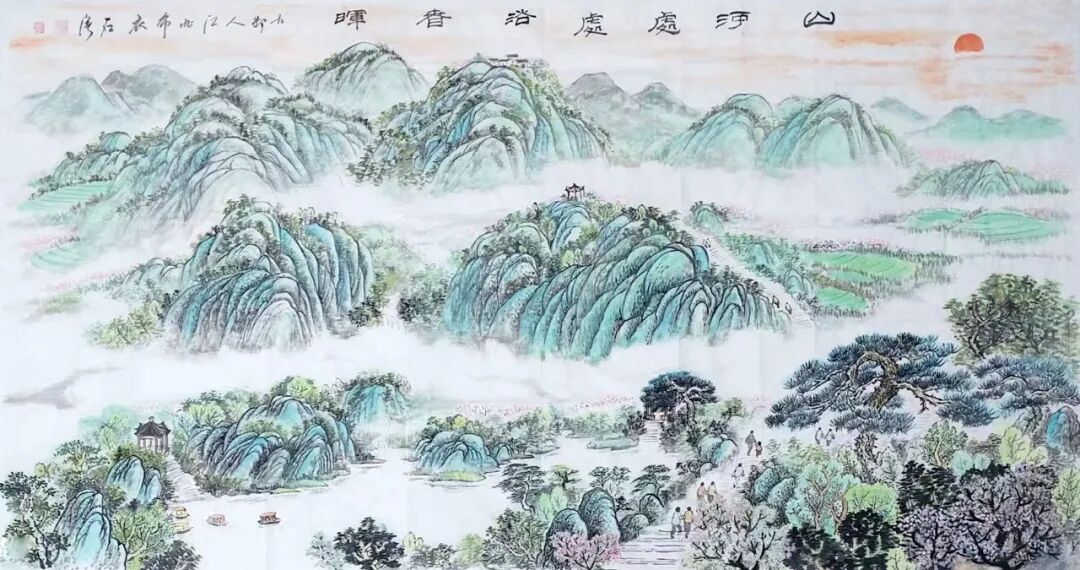 山河處處浴春暉
人江北布衣石